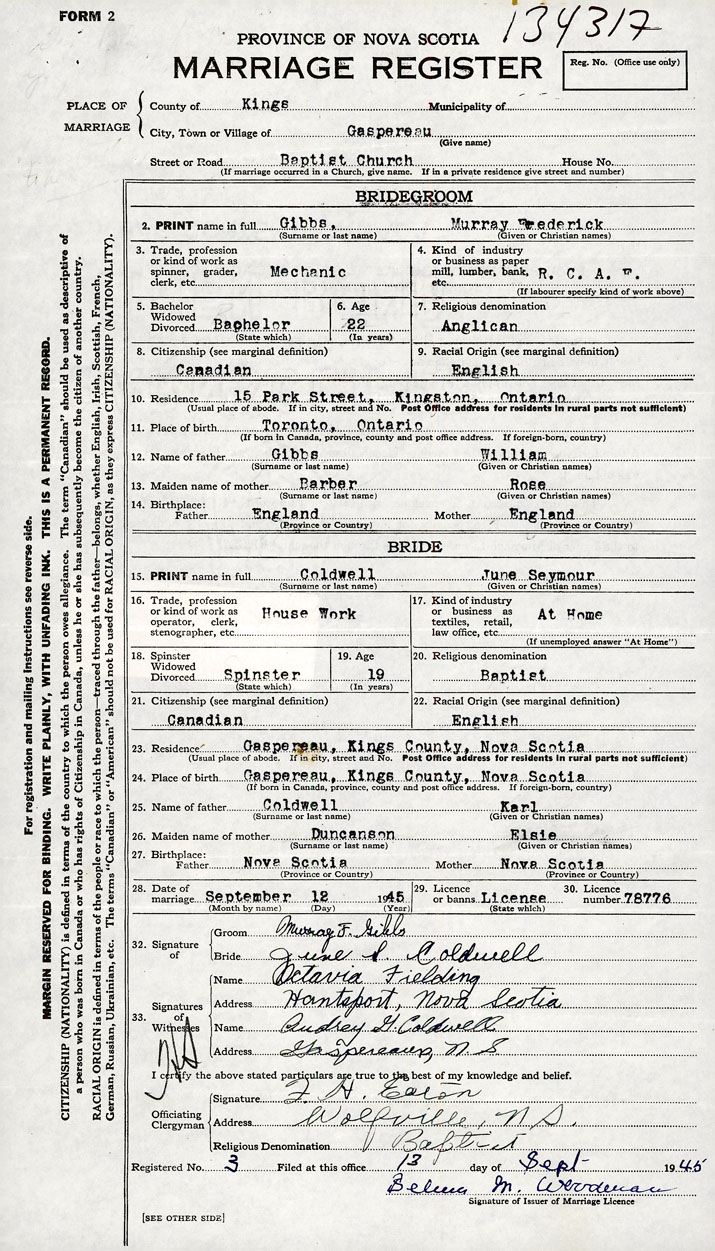 FORM 2
134317
PROVINCE OF NOVA SCOTIA
MARRIAGE REGISTER
Reg. No. (Office use only)
PLACE OF MARRIAGE
County of Kings Municipality of
City, Town or Village of Gaspereau
(Give name)
Street or Road Baptist Church House No.
(If marriage occurred in a Church, give name. If in a private residence give street and number)
BRIDEGROOM
2. PRINT name in full Gibbs, Murray Frederick
(Surname or last name) (Given or Christian names)
3. Trade, profession or kind of work as spinner, grader, clerk, etc. Mechanic
4. Kind of industry or business as paper mill, lumber, bank, etc. R. C. A. F.
(If labourer specify kind of work above)
5. Bachelor Widowed Divorced Bachelor
(State which)
6. Age 22
(In years)
7. Religious denomination
Anglican
8. Citizenship (see marginal definition)
Canadian
9. Racial Origin (see marginal definition)
English
10. Residence 15 Park Street, Kingston, Ontario
(Usual place of abode. If in city, street and No. Post Office address for residents in rural parts not sufficient)
11. Place of birth Toronto, Ontario
(If born in Canada, province, county and post office address. If foreign-born, country)
12. Name of father Gibbs William
(Surname or last name) (Given or Christian names)
13. Maiden name of mother Barber Rose
(Surname or last name) (Given or Christian names)
14. Birthplace:
Father England Mother England
(Province or Country) (Province or Country)
BRIDE
15. PRINT name in full Coldwell June Seymour
(Surname or last name) (Given or Christian names)
16. Trade, profession or kind of work as operator, clerk, stenographer, etc. House Work
17. Kind of industry or business as textiles, retail, law office, etc. At Home
(If unemployed answer "At Home")
18. Spinster Widowed Divorced Spinster
(State which)
19. Age 19
(In years)
20. Religious denomination
Baptist
21. Citizenship (see marginal definition)
Canadian
22. Racial Origin (see marginal definition)
English
23. Residence Gaspereau, Kings County, Nova Scotia
(Usual place of abode. If in city, street and No. Post Office address for residents in rural parts not sufficient)
24. Place of birth Gaspereau, Kings County, Nova Scotia
(If born in Canada, province, county and post office address. If foreign-born, country)
25. Name of father Coldwell Karl
(Surname or last name) (Given or Christian names)
26. Maiden name of mother Duncanson Elsie
(Surname or last name) (Given or Christian names)
27. Birthplace:
Father Nova Scotia Mother Nova Scotia
(Province or Country) (Province or Country)
28. Date of marriage September 12 1945
(Month by name) (Day) (Year)
29. Licence or banns License
(State which)
30. Licence number 78776
32. Signature of
Groom Murray F. Gibbs
Bride June S. Coldwell
33. Signatures of Witnesses
Name Octavia Fielding
Address Hantsport, Nova Scotia
Name Audrey G. Coldwell
Address Gaspereau, N.S.
I certify the above stated particulars are true to the best of my knowledge and belief.
Officiating Clergyman
Signature F. H. Eaton
Address Wolfville, N.S.
Religious Denomination Baptist
Registered No. 3 Filed at this office 13 day of Sept 1945
M. Woodman
Signature of Issuer of Marriage Licence
[SEE OTHER SIDE]
For registration and mailing instructions see reverse side.
MARGIN RESERVED FOR BINDING. WRITE PLAINLY, WITH UNFADING INK. THIS IS A PERMANENT RECORD.
CITIZENSHIP (NATIONALITY) is defined in terms of the country to which the person owes allegiance. The term "Canadian" should be used as descriptive of
a person who was born in Canada or who has rights of Citizenship in Canada, unless he or she has subsequently become the citizen of another country.
RACIAL ORIGIN is defined in terms of the people or race to which the person—traced through the father—belongs, whether English, Irish, Scottish, French,
German, Russian, Ukrainian, etc. The terms "Canadian" or "American" should not be used for RACIAL ORIGIN, as they express CITIZENSHIP (NATIONALITY).